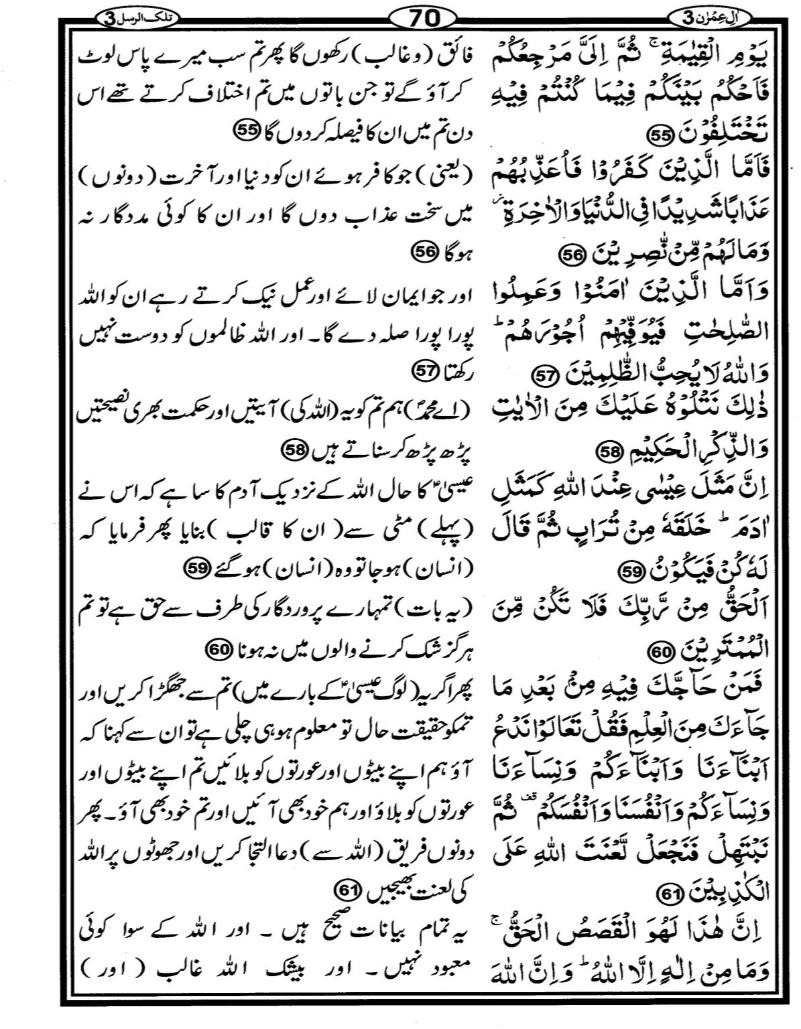 اٰل عِمْرٰن 3
70
تلک الرسل 3
يَوْمِ الْقِيٰمَةِ ۚ ثُمَّ اِلَیَّ مَرْجِعُكُمْ
فَاَحْكُمُ بَيْنَكُمْ فِيْمَا كُنْتُمْ فِيْهِ
تَخْتَلِفُوْنَ 55
فَاَمَّا الَّذِيْنَ كَفَرُوْا فَاُعَذِّبُهُمْ
عَذَابًا شَدِيْدًا فِی الدُّنْيَا وَالْاٰخِرَةِ ۡ
وَمَا لَهُمْ مِّنْ نّٰصِرِيْنَ 56
وَاَمَّا الَّذِيْنَ اٰمَنُوْا وَعَمِلُوا
الصّٰلِحٰتِ فَيُوَفِّيْهِمْ اُجُوْرَهُمْ ؕ
وَاللّٰهُ لَا يُحِبُّ الظّٰلِمِيْنَ 57
ذٰلِكَ نَتْلُوْهُ عَلَيْكَ مِنَ الْاٰيٰتِ
وَالذِّكْرِ الْحَكِيْمِ 58
اِنَّ مَثَلَ عِيْسٰى عِنْدَ اللّٰهِ كَمَثَلِ
اٰدَمَ ؕ خَلَقَهٗ مِنْ تُرَابٍ ثُمَّ قَالَ
لَهٗ كُنْ فَيَكُوْنُ 59
اَلْحَقُّ مِنْ رَّبِّكَ فَلَا تَكُنْ مِّنَ
الْمُمْتَرِيْنَ 60
فَمَنْ حَآجَّكَ فِيْهِ مِنْۢ بَعْدِ مَا
جَآءَكَ مِنَ الْعِلْمِ فَقُلْ تَعَالَوْا نَدْعُ
اَبْنَآءَنَا وَاَبْنَآءَكُمْ وَنِسَآءَنَا
وَنِسَآءَكُمْ وَاَنْفُسَنَا وَاَنْفُسَكُمْ ۟ ثُمَّ
نَبْتَهِلْ فَنَجْعَلْ لَّعْنَتَ اللّٰهِ عَلَى
الْكٰذِبِيْنَ 61
اِنَّ هٰذَا لَهُوَ الْقَصَصُ الْحَقُّ ۚ
وَمَا مِنْ اِلٰهٍ اِلَّا اللّٰهُ ؕ وَاِنَّ اللّٰهَ
فائق (و غالب) رکھوں گا پھر تم سب میرے پاس لوٹ
کر آؤ گے تو جن باتوں میں تم اختلاف کرتے تھے اس
دن تم میں ان کا فیصلہ کردوں گا 55
(یعنی) جو کافر ہوئے ان کو دنیا اور آخرت (دونوں)
میں سخت عذاب دوں گا اور ان کا کوئی مددگار نہ
ہوگا 56
اور جو ایمان لائے اور عمل نیک کرتے رہے ان کو اللہ
پورا پورا صلہ دے گا۔ اور اللہ ظالموں کو دوست نہیں
رکھتا 57
(اے محمدؐ) ہم تم کو یہ (اللہ کی) آیتیں اور حکمت بھری نصیحتیں
پڑھ پڑھ کر سناتے ہیں 58
عیسیٰؑ کا حال اللہ کے نزدیک آدم کا سا ہے کہ اس نے
(پہلے) مٹی سے( ان کا قالب )بنایا پھر فرمایا کہ
(انسان) ہو جا تو وہ (انسان) ہو گئے 59
(یہ بات) تمہارے پروردگار کی طرف سے حق ہے تو تم
ہرگز شک کرنے والوں میں نہ ہونا 60
پھر اگر یہ (لوگ عیسیٰؑ کے بارے میں) تم سے جھگڑا کریں اور
تمکو حقیقت حال تو معلوم ہو ہی چلی ہے تو ان سے کہنا کہ
آؤ ہم اپنے بیٹوں اور عورتوں کو بلائیں تم اپنے بیٹوں اور
عورتوں کو بلاؤ اور ہم خود بھی آئیں اور تم خود بھی آؤ۔ پھر
دونوں فریق (اللہ سے) دعا التجا کریں اور جھوٹوں پر اللہ
کی لعنت بھیجیں 61
یہ تمام بیانات صحیح ہیں ۔ اور اللہ کے سوا کوئی
معبود نہیں۔ اور بیشک اللہ غالب (اور)